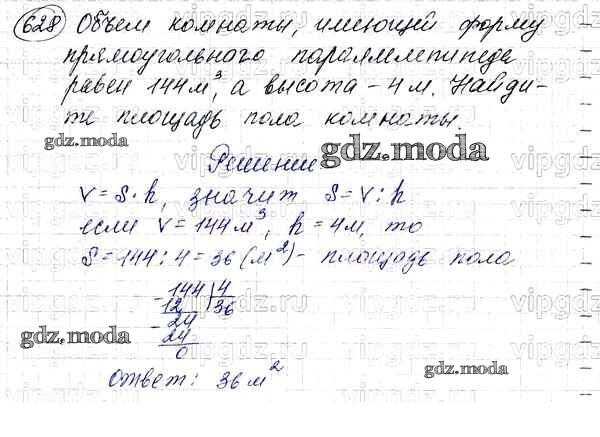 628 Объем комнаты, имеющей форму
прямоугольного параллелепипеда
равен 144 м³, а высота – 4 м. Найди-
те площадь пола комнаты.
gdz.moda
gdz.moda
Решение
V = S · h, значит S = V : h
если V = 144 м³, h = 4 м, то
S = 144 : 4 = 36 (м²) – площадь пола
144 | 4
12 | 36
24
24
0
gdz.moda
gdz.moda
Ответ: 36 м²